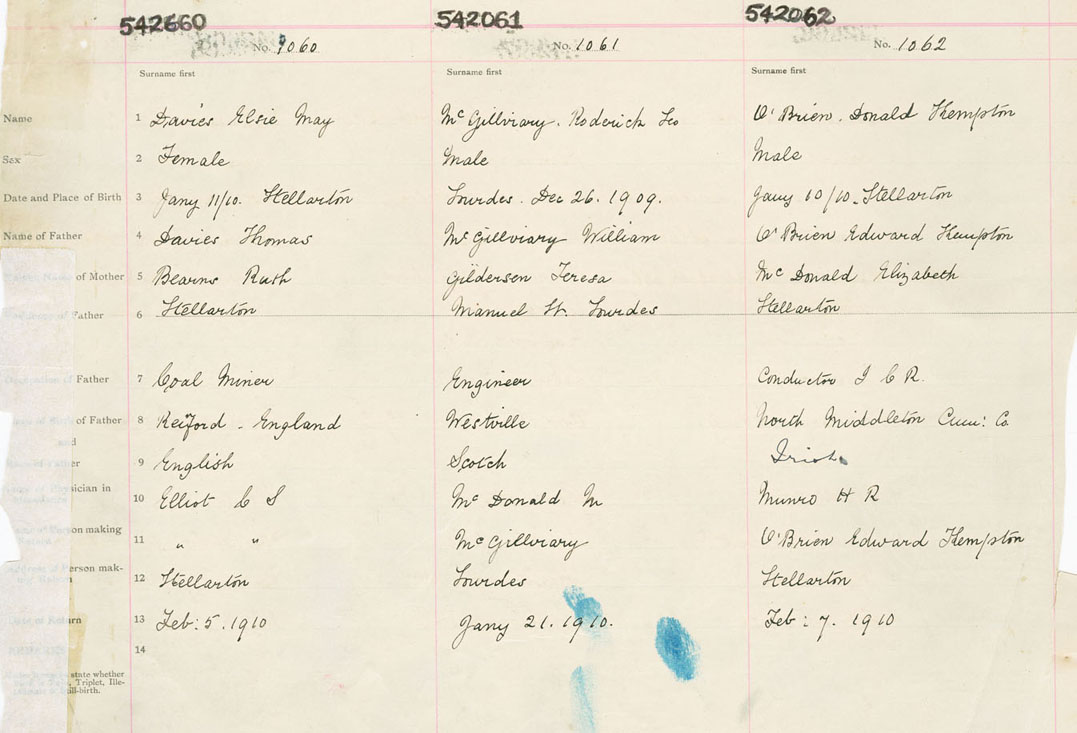 542660 542061 542062
No. 1060 No. 1061 No. 1062
Surname first Surname first Surname first
Name 1 Davies Elsie May McGillviary. Roderick Leo O'Brien. Donald Kempton
Sex 2 Female Male Male
Date and Place of Birth 3 Jany 11/10. Stellarton Lourdes. Dec 26. 1909. Jany 10/10. Stellarton
Name of Father 4 Davies Thomas McGillviary William O'Brien Edward Kempton
of Mother 5 Bearns Ruth Gildersen Teresa McDonald Elizabeth
Father 6 Stellarton Manuel St. Lourdes Stellarton
Occupation of Father 7 Coal Miner Engineer Conductor I C R.
of Father 8 England Westville North Middleton Co
and
Father 9 English Scotch Irish
Physician in 10 Elliot C S McDonald M Munro H R
Person making
11 " " McGillviary O'Brien Edward Kempton
Person mak-
12 Stellarton Lourdes Stellarton
Date of Return 13 Feb: 5. 1910 Jany 21. 1910. Feb: 7. 1910
14
state whether
Triplet, Ille-
still-birth.